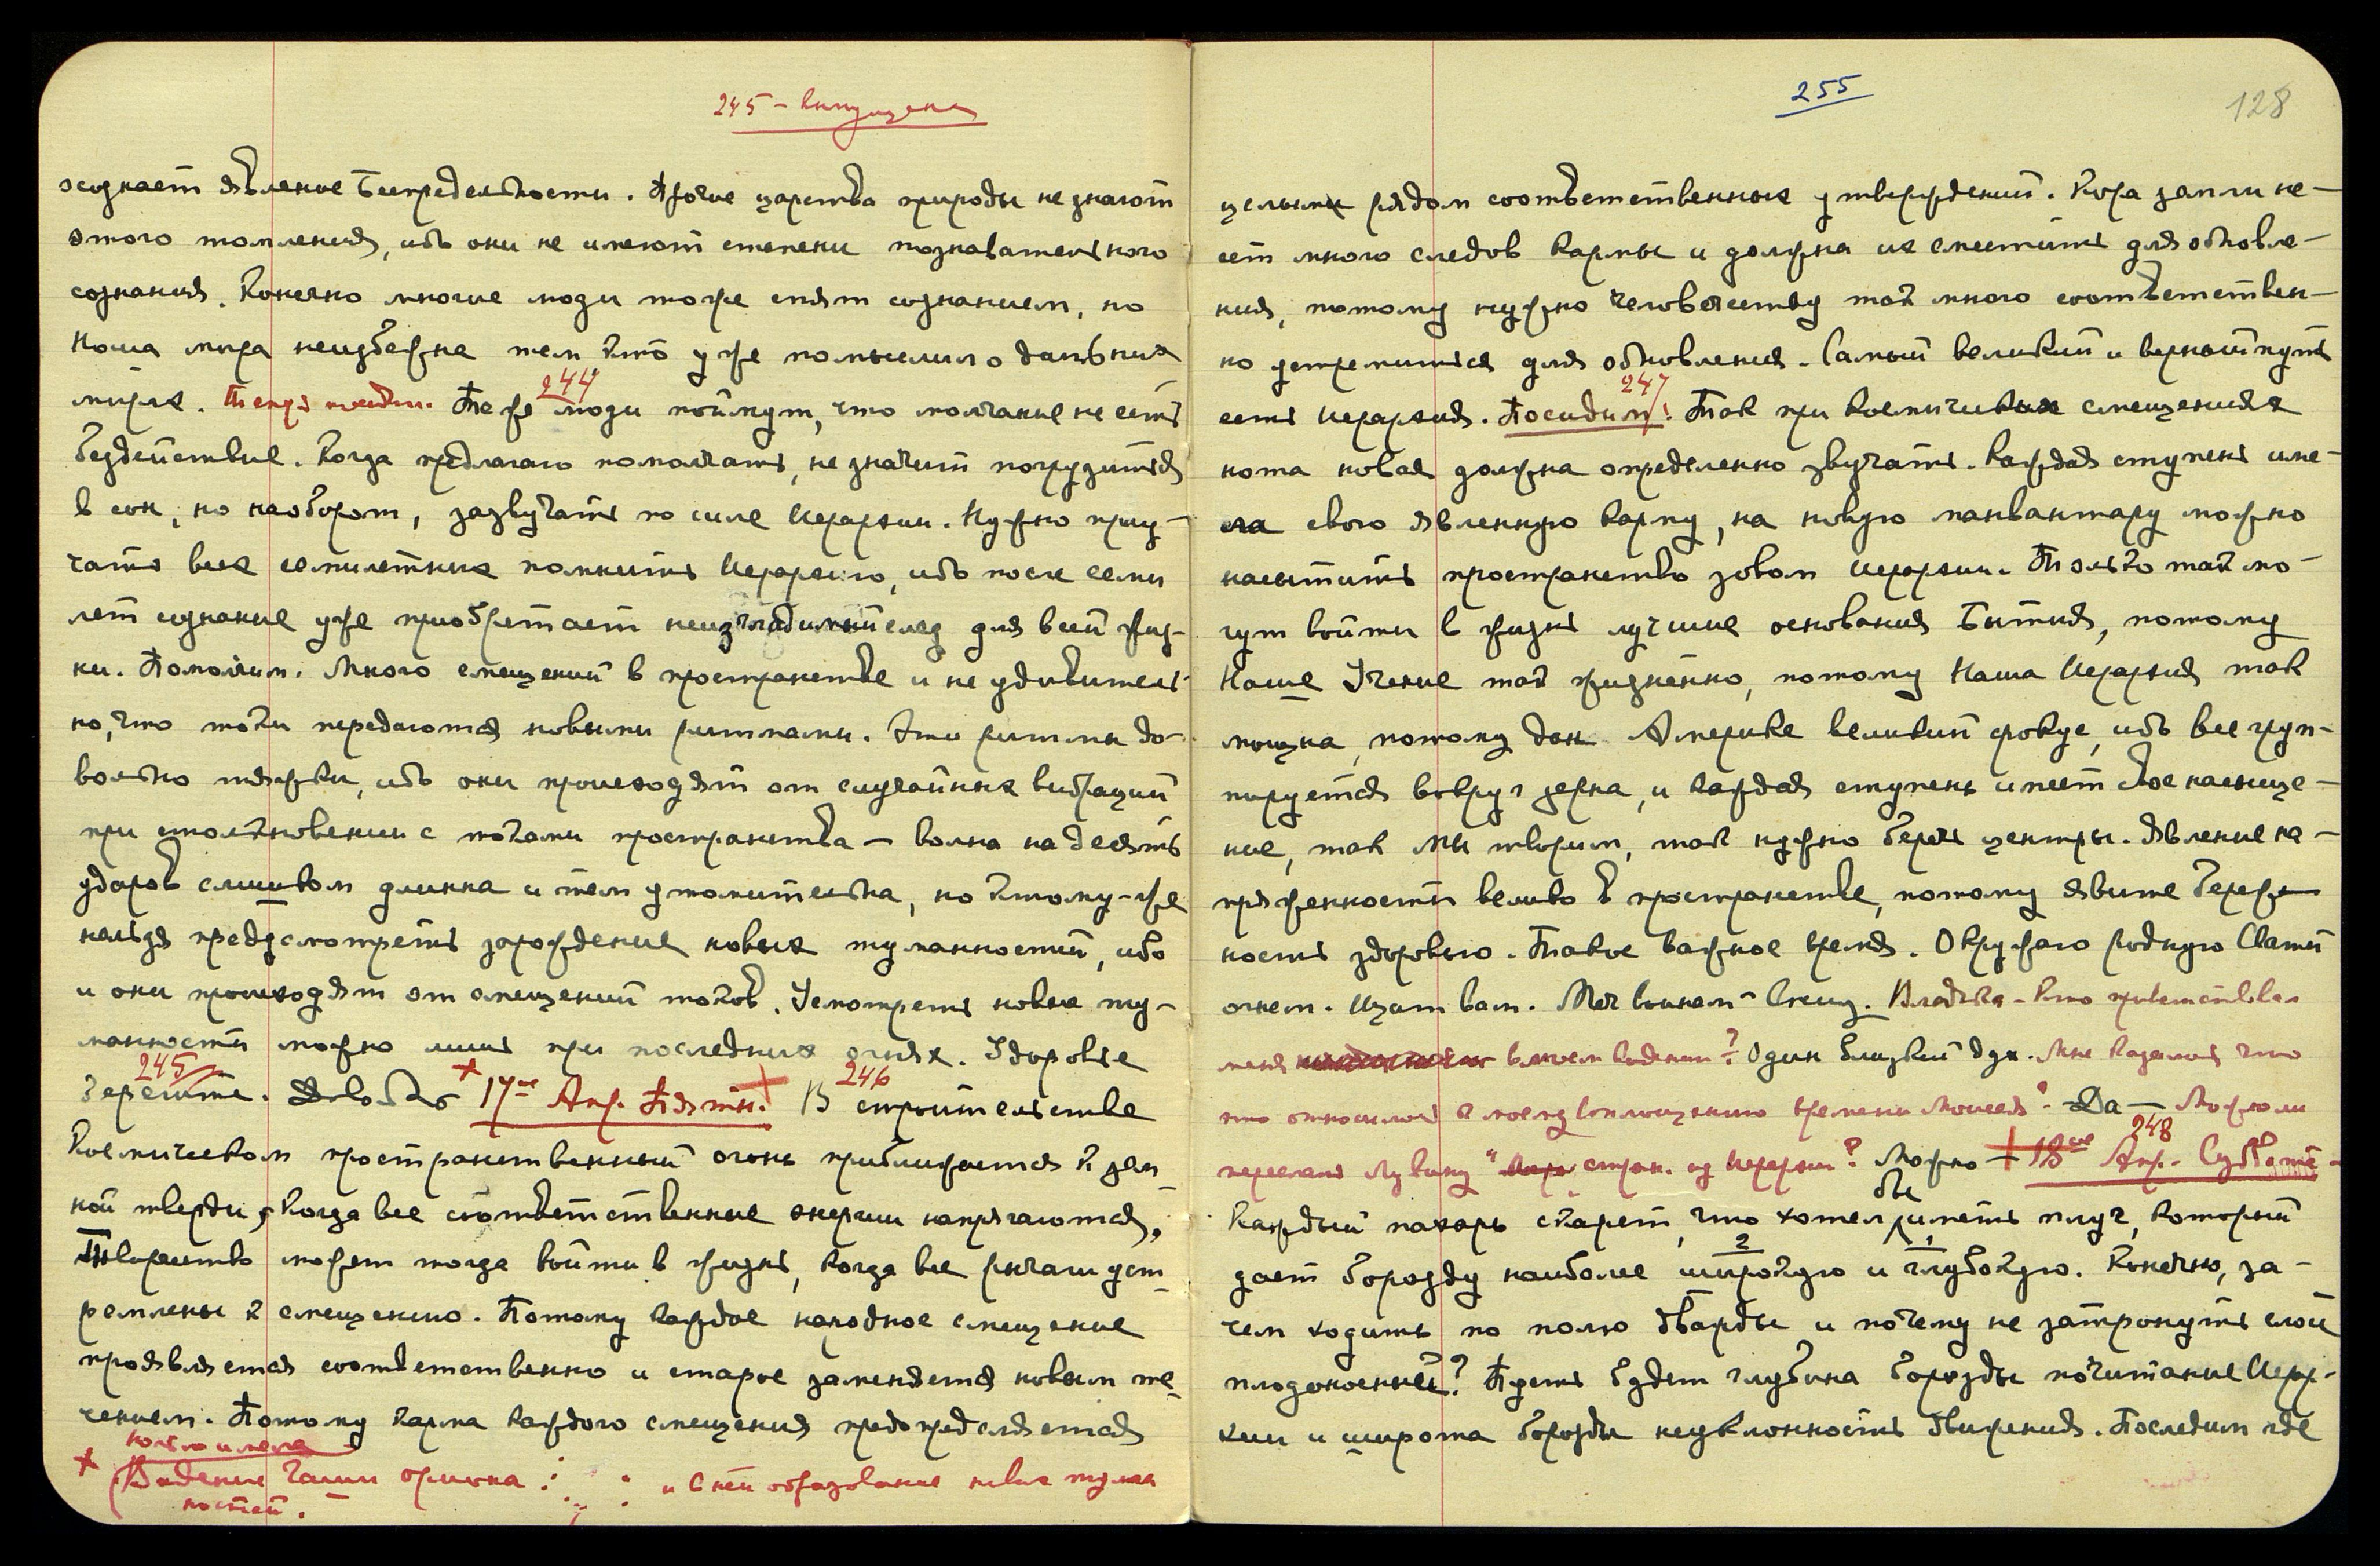 245 – выпущена
осознает явление Беспредельности. Прочие царства природы не знают
этого томления, ибо они не имеют степени познавательного
сознания. Конечно многие люди тоже спят сознанием, но
Ноша мира неизбежна тем кто уже помыслил о дальних
мирах. 244 Те же люди поймут, что молчание не есть
бездействие. Когда предлагаю помолчать, не значит погрузиться
в сон, но наоборот, зазвучать по силе Иерархии. Нужно приу-
чать всех семилетних помнить Иерархию, ибо после семи
лет сознание уже приобретает неизгладимый след для всей жиз-
ни. Помолчим. Много смещений в пространстве и не удивитель-
но, что токи передаются новыми ритмами. Эти ритмы до-
вольно тяжки, ибо они происходят от случайных вибраций
при столкновении с токами пространства – волна на десять
ударов слишком длинна и тем утомительна, но к тому-же
нельзя предусмотреть зарождение новых туманностей, ибо
и они происходят от смещений токов. Усмотреть новые ту-
манности можно лишь при последних огнях. Здоровье
245
берегите. Довольно + 17ое Апр. Пятн. + 246 В строительстве
Космическом пространственный огонь приближается к зем-
ной тверди, когда все соответственные энергии напрягаются.
Творчество может тогда войти в жизнь, когда все рычаги уст-
ремлены к смещению. Потому каждое народное смещение
проявляется соответственно и старое заменяется новым те-
чением. Потому карма каждого смещения предопределяется
+ Видение Чаши Ориона : и в ней образование новых туман
ностей.
255
128
целым рядом соответственных утверждений. Кора земли не-
сет много следов кармы и должна их сместить для обновле-
ния, потому нужно человечеству так много соответствен-
но устремиться для обновления. Самый великий и верный путь
есть Иерархия. Посидим. 247 Так при космических смещениях
нота новая должна определенно звучать. Каждая ступень име-
ла свою явленную карму, на новую манвантару можно
насытить пространство зовом Иерархии. Только так мо-
гут войти в жизнь лучшие основания Бытия, потому
Наше Учение так жизненно, потому Наша Иерархия так
мощна, потому дан Америке великий фокус, ибо все груп-
пируется вокруг зерна, и каждая ступень имеет свое насыще-
ние, так Мы творим, так нужно беречь центры. Явление на-
пряженности велико в пространстве, потому явите береж-
ность здоровью. Такое важное время. Окружаю родную Свати
огнем. Щит вам. Меч воинам – Спешу. Владыка – Кто приветствовал
меня в моем видении? Один близкий дух. Мне казалось что
это относилось к моему воплощению времени Моисея? – Да – Можно ли
переслать Лузину стран. из Иерархии? Можно + 18ое Апр. Суббота –
248
Каждый пахарь скажет, что хотел бы иметь плуг, который
дает борозду наиболее широкую и глубокую. Конечно, за-
чем ходить по полю дважды и почему не затронуть слой
плодоноснее? Пусть будет глубина борозды почитание Иерар-
хии и широта борозды неуклонность движения. Последим где